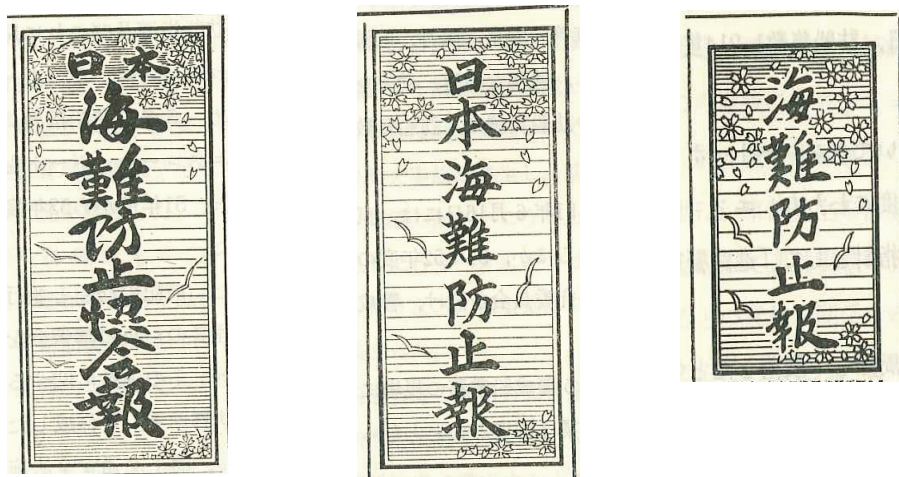 日本
海難防止協会報
日本海難防止報
海難防止報